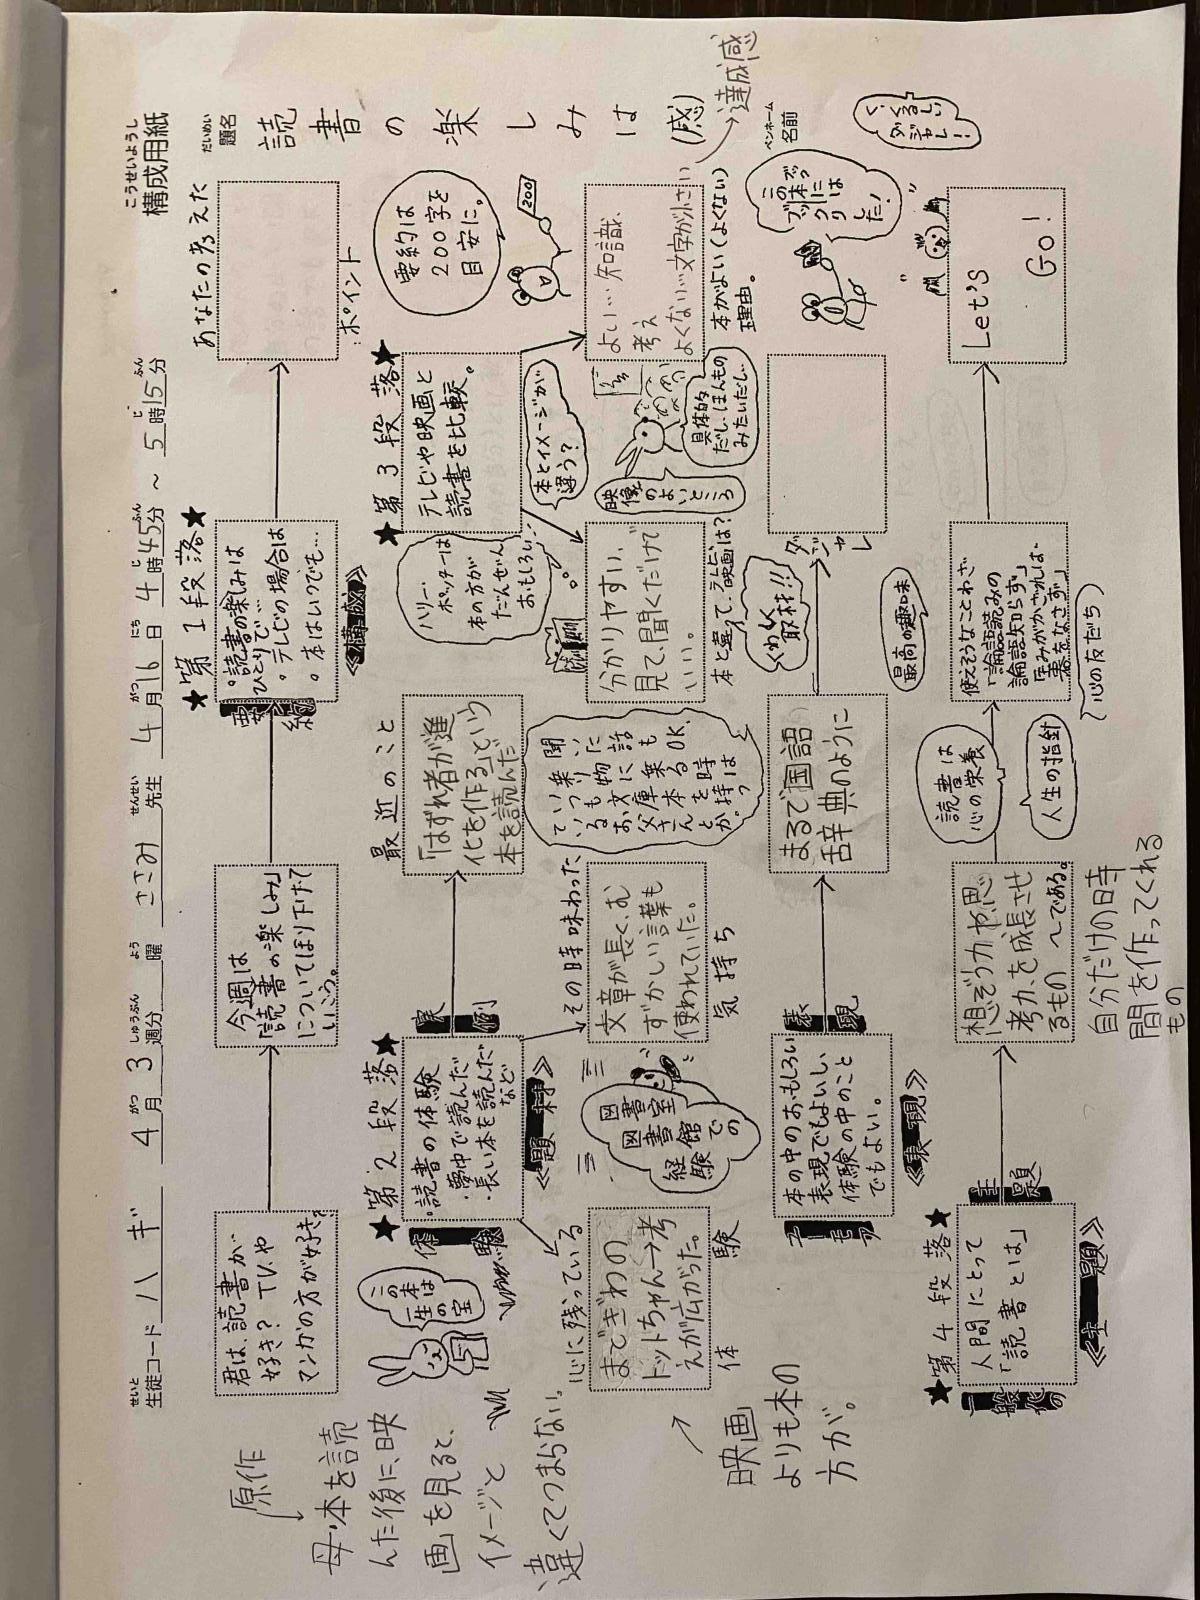 こうせいようし
構成用紙
せいと
生徒コード ハギ 4月3週分 曜 ささみ 先生 4月16日 4時45分 〜 5時15分
だいめい
題名 読書の楽しみは(感)
ペンネーム
名前
→達成感
★第1段落★
君は、読書が
好き?TVや
マンガの方が好き?
今週は
「読書の楽しみ」
についてほり下げて
いこう。
要約
。読書の楽しみは
ひとりで
。テレビの場合は
。本はいつでも…
《構成》
あなたの考えた
ポイント
要約は
200字を
目安に。
200
原作
母・本を読
んだ後に、映
画を見ると、
イメージと
違くてつまらない。
★第2段落★
体験
実例
・読書の体験
・夢中で読んだ
・長い本を読んだ
など
《題材》
この本は
一生の
宝
最近のこと
「はずれ者が進
化を作る」という
本を読んだ
心に残っている
まどぎわの
トットちゃん→考
えが広がった。
体験
図書室
図書館での
経験
その時味わった
文章が長く、む
ずかしい言葉も
使われていた。
気持ち
聞いた話もOK
★第3段落★
テレビや映画と
読書を比較。
ハリー・
ポッターは
本の方が
だんぜん
おもしろい…
本とイメージが
違う?
分かりやすい、
見て、聞くだけで
いい。
本と違って、テレビ、映画は?
映像のよいところ
具体的
だし、ほんもの
みたいだし…
よい…知識、
考え
よくない…文字が小さい
本がよい(よくない)
理由。
映画
よりも本の
方が。
表現
本の中のおもしろい
表現でもよいし、
体験の中のこと
でもよい。
《表現》
まるで国語
辞典のように
くわしく
取材!!
ダジャレ
この本には
ブックリ
した!
く、くるしい
ダジャレ!
★第4段落★
一般化の
主題
人間にとって
「読書とは」
《主題》
想ぞう力や思
考力、を成長させ
るもの 〜である。
自分だけの時
間を作ってくれる
もの
読書は
心の栄養
人生の指針
最高の趣味
心の友だち
使えそうなことわざ
「論語読みの
論語知らず」
Let's
Go!